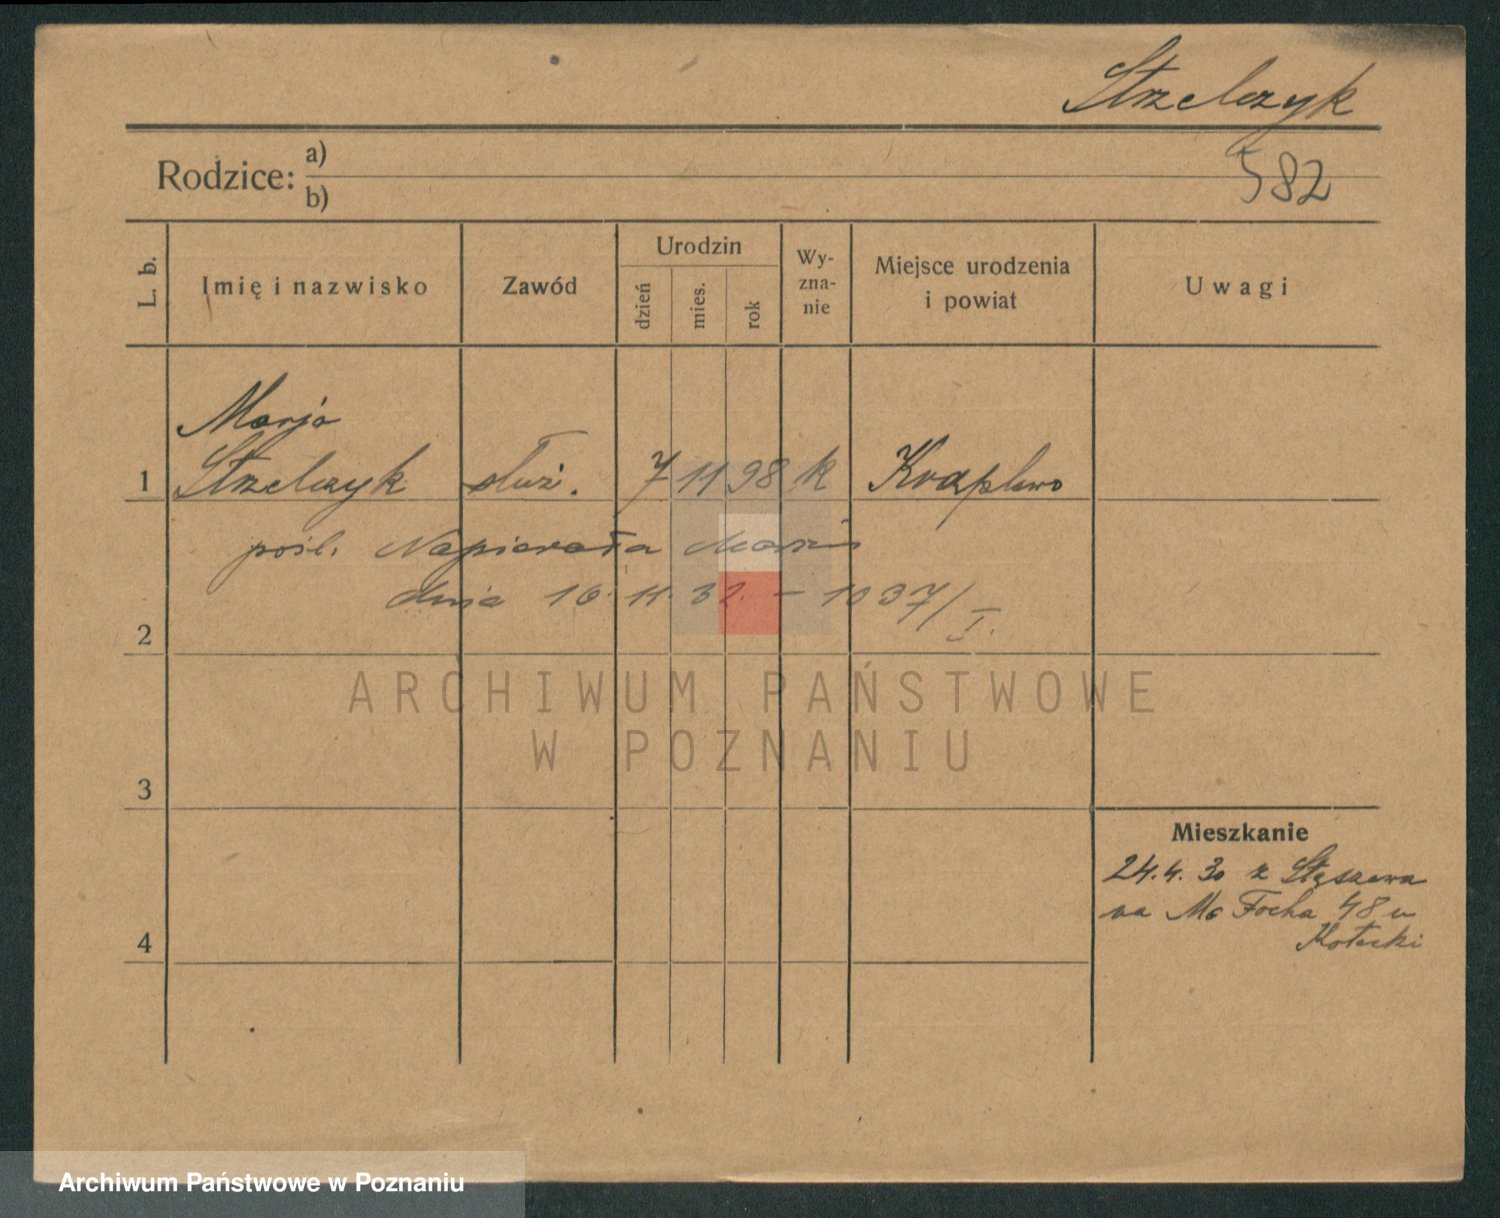 Strzelczyk
Rodzice:
a)
b)
582
L. b.
Imię i nazwisko
Zawód
Urodzin
dzień
mies.
rok
Wy-
zna-
nie
Miejsce urodzenia
i powiat
Uwagi
Marja
1 Strzelczyk służ. 7 11 98 k Krąplewo
pośl. Napierała
dnia 16. 11. 32. - 1037/I.
2
ARCHIWUM PAŃSTWOWE
W POZNANIU
3
Mieszkanie
24.4.30 z Stęszewa
na Focha 48 u
4
Archiwum Państwowe w Poznaniu